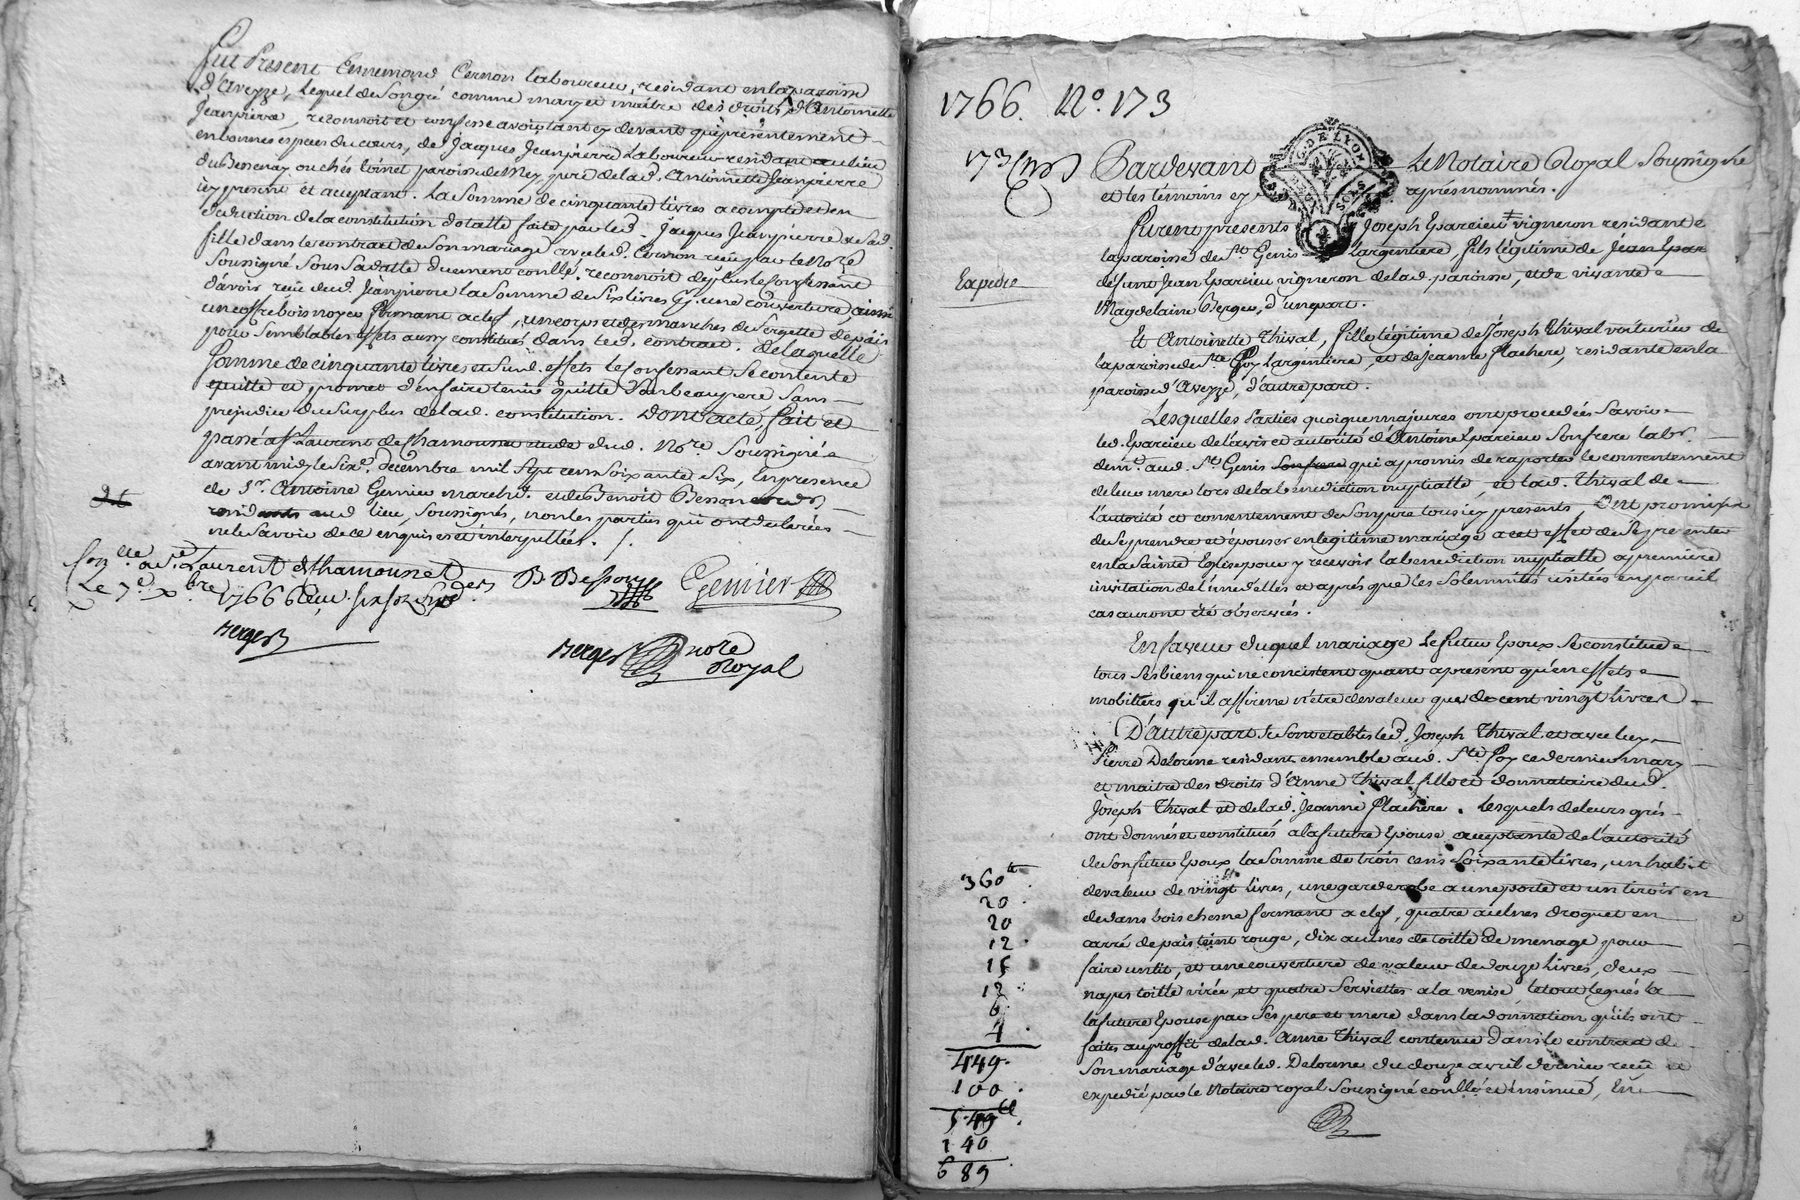 Fut Present Ennemond Cernon laboureur, residant en la paroisse
d'aveyze, lequel de son gré comme mary et maitre des droits d'antoinette
Jeanpierre, reconnoit et confesse avoir tant cy devant que présentement
en bonnes especes du cours, de Jacques Jeanpierre Laboureur residant au lieu
du Bessenay ou chés toinet paroisse de Mey, pere de lad. Antoinette Jeanpierre
icy present et acceptant. La somme de cinquante livres a compte et en
deduction de la constitution dotalle faite par led. Jacques Jeanpierre a sad.
fille dans le contract de son mariage avec led. Cernon reçu par le Nore
soussigné sous sa datte duement conllé, reconnoit de plus le confessant
d'avoir reçu dud. Jeanpierre la somme de six livres une couverture ainsi
un coffre bois noyer fermant a clef, un corps et des manches de sergette de païs
pour semblables effets aussy constitués dans led. contract. de laquelle
somme de cinquante livres et susd. effets le confessant se contente
quitte et promet d'en faire tenir quitte son beaupere sans
prejudice du surplus de lad. constitution. Dont acte, fait et
passé a St Laurent de Chamousset etude dud. Nore. soussigné
avant midy le sixe. decembre mil sept cens soixante six, En presence
de Sr. Antoine Genier marchd. et de Benoit Besson
residants aud lieu, soussignés, non les parties qui ont declarées
ne le savoir de ce enquises et interpellées. /.
Conllé a St. Laurent de Chamousset
Le 7e. Xbre 1766 Reçu six sols
B Besson Genier
Berger
Berger nore
Royal
1766. No. 173
173 Pardevant Le Notaire Royal soussigné
et les témoins cy après nommés.
Furent presents Joseph Eparcieu vigneron residant
la paroisse de St Genis Largentiere, fils légitime de Jean Epar
Expedié
defunt Jean Eparcieu vigneron de lad. paroisse, et de vivante
Magdelaine Berger, d'une part.
Et Antoinette Thival, fille légitime de Joseph Thival voiturier de
la paroisse de Ste Foy Largentiere, et de Jeanne Plachere, residante en la
paroisse d'Aveyze, d'autre part.
Lesquelles Parties quoique majeures ont procedées savoir
led. Eparcieu de l'avis et autorité d'Antoine Eparcieu son frere labr.
demt. aud. St Genis son frere qui a promis de raporter le consentement
de leur mere lors de la benediction nuptialle, et lad. Thival de
l'autorité et consentement de son pere tous icy presents, Ont promis
de se prendre et épouser en legitime mariage a cet effet de se presenter
en la Sainte Eglise pour y recevoir la benediction nuptialle a premiere
invitation de l'un d'elles et après que les solemnités usitées en pareil
cas auront été observées.
En faveur duquel mariage Le futur Epoux se constitue
tous ses biens qui ne concistent quant a présent qu'en effets
mobiliers qu'il affirme n'être de valeur que de cent vingt livres
D'autre part se sont etablis led. Joseph Thival et avec luy
Pierre Delorme residant ensemble aud. Ste Foy ce dernier mary
et maitre des droits d'Anne Thival fille et donnataire dud.
Joseph Thival et de lad. Jeanne Plachere. Lesquels de leurs grés
ont donnés et constitués a la future Epouse acceptante de l'autorité
de son futur Epoux la somme de trois cens soixante livres, un habit
de valeur de vingt livres, une garderobe a une porte et un tiroir en
dedans bois chesne fermant a clef, quatre aulnes droguet en
carré de païs teint rouge, dix aulnes de toille de menage pour
faire un lit, et une couverture de valeur de douze livres, deux
napes toille virée et quatre serviettes a la venise, le tout legués a
la future Epouse par ses pere et mere dans la donnation qu'ils ont
faites au proffit de lad. Anne Thival contenue dans le contract de
son mariage d'avec led. Delorme du douze avril dernier reçu et
expedié par le Notaire royal soussigné conllé et insinué, En
360tt
20
20
12
15
12
6
4
449
100
549tt
140
689